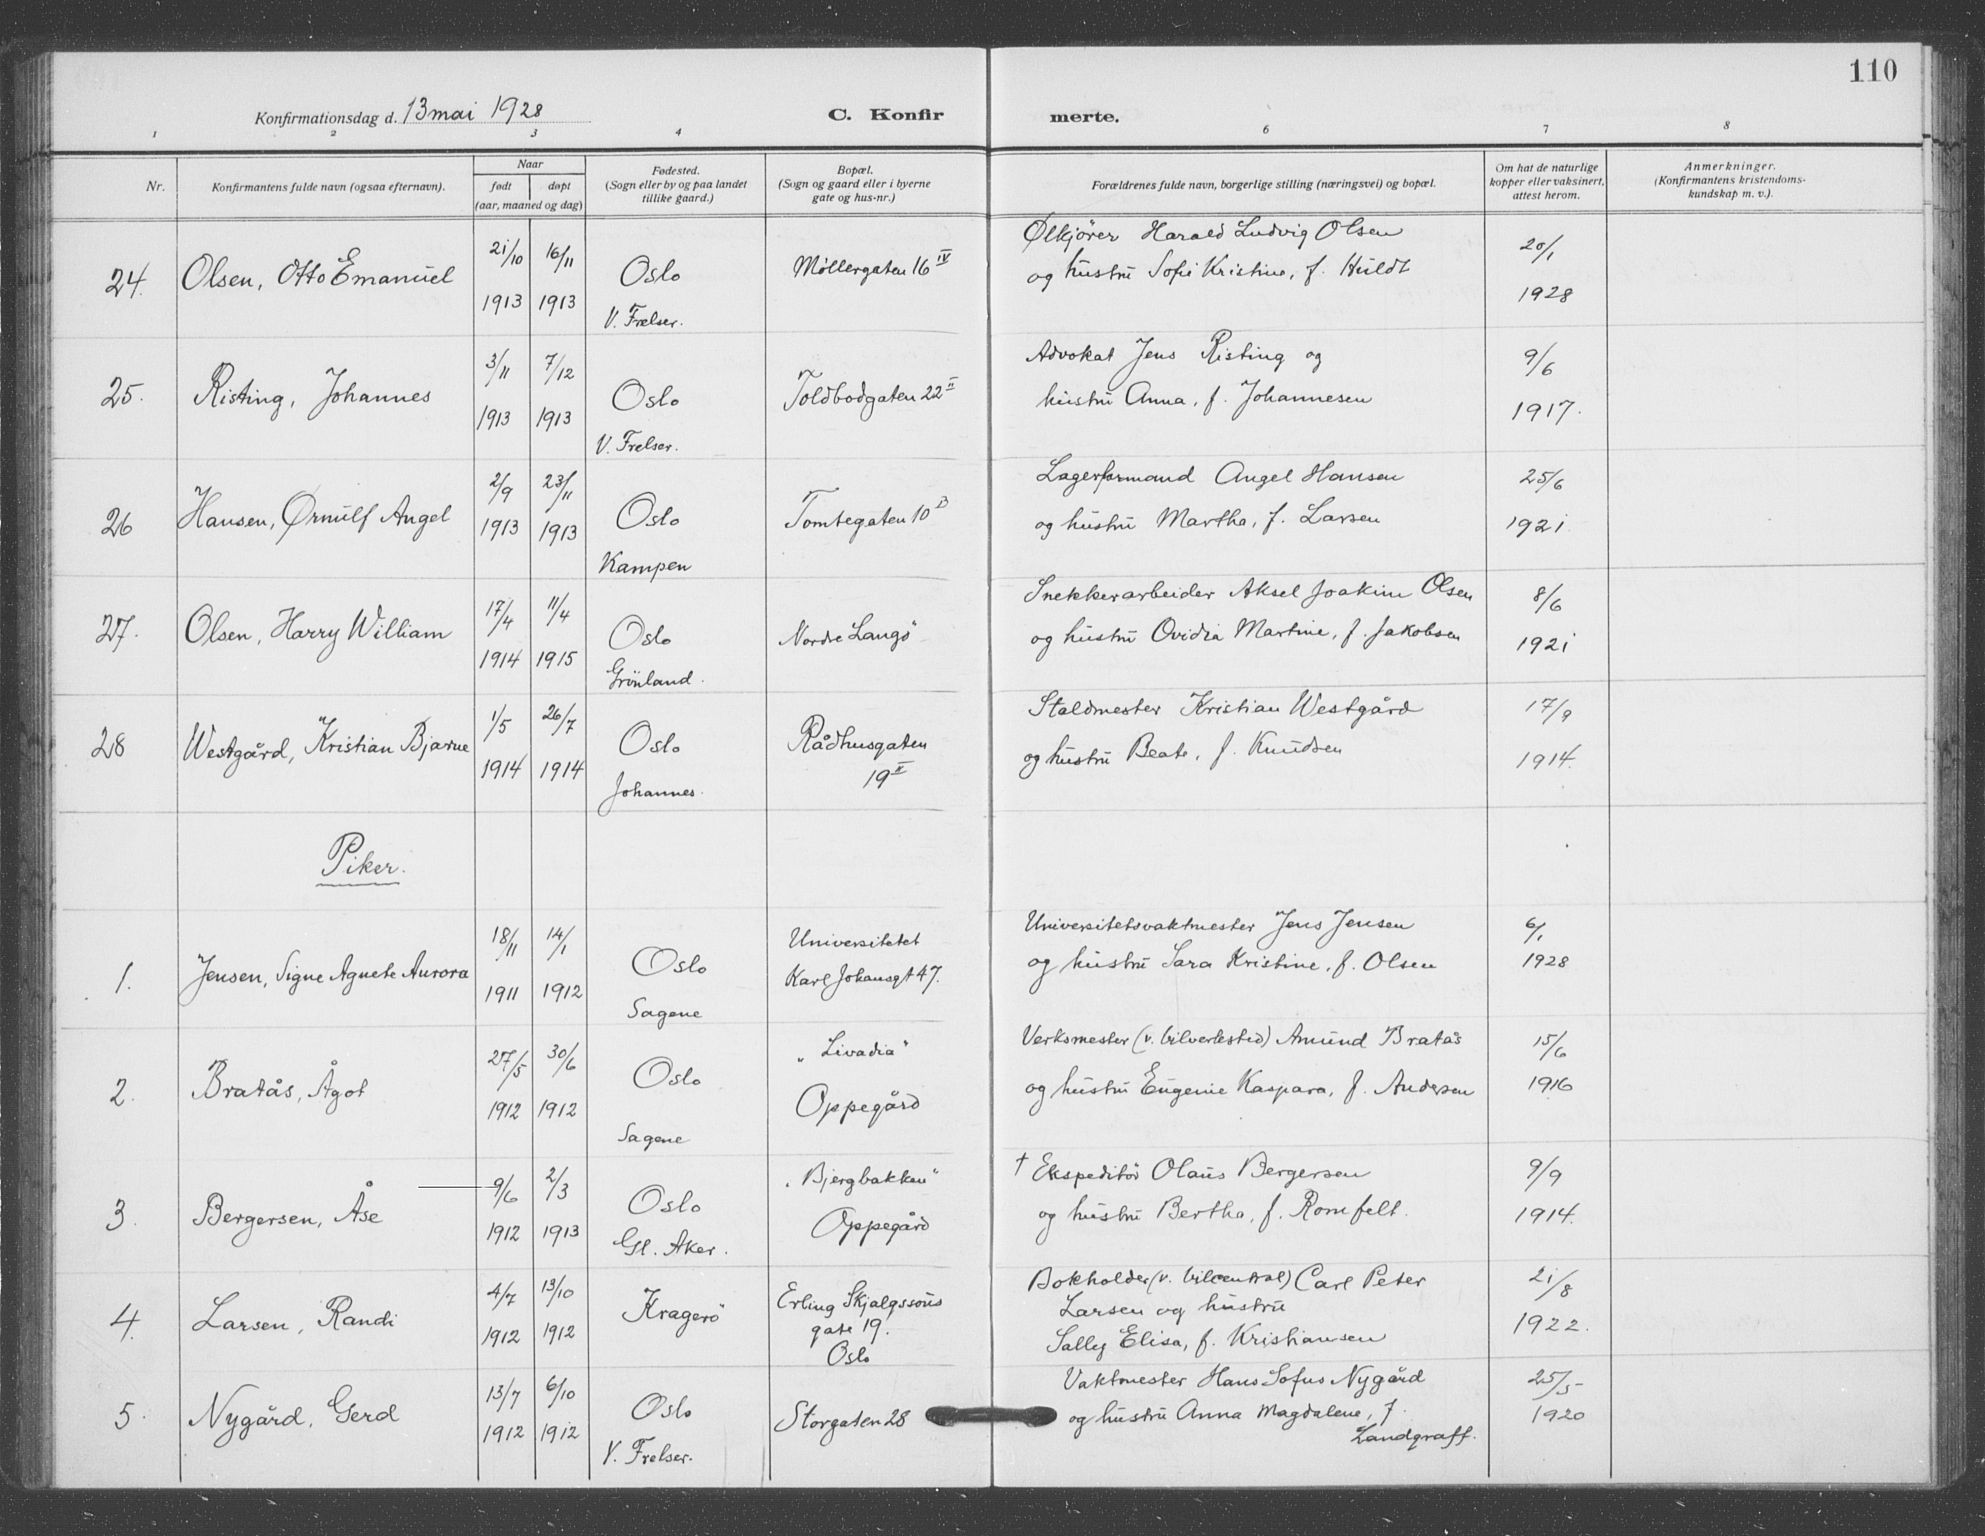 110
Konfirmationsdag d. 13 mai 1928
C. Konfirmerte.
1 2 3 4 6 7 8
Nr.
Konfirmantens fulde navn (ogsaa efternavn).
Naar
født døpt
(aar, maaned og dag)
Fødested.
(Sogn eller by og paa landet
tillike gaard.)
Bopæl.
(Sogn og gaard eller i byerne
gate og hus-nr.)
Forældrenes fulde navn, borgerlige stilling (næringsvei) og bopæl.
Om hat de naturlige
kopper eller vaksinert,
attest herom.
Anmerkninger.
(Konfirmantens kristendoms-
kundskap m. v.).
24. Olsen, Otto Emanuel
21/10 1913
16/11 1913
Oslo
V. Frelser.
Møllergaten 16 IV
Ølkjörer Harald Ludvig Olsen
og hustru Sofie Kristine, f. Huldt
20/1
1928
25. Risting, Johannes
3/11 1913
7/12 1913
Oslo
V. Frelser.
Toldbodgaten 22 II
Advokat Jens Risting og
hustru Anna, f. Johannesen
9/6
1917.
26 Hansen, Ørnulf Angel
2/9 1913
23/11 1913
Oslo
Kampen
Tomtegaten 10 B
Lagerformand Angel Hansen
og hustru Martha, f. Larsen
25/6
1921
27. Olsen, Harry William
17/4 1914
11/4 1915
Oslo
Grönland.
Nordre Langö
Snekkerarbeider Aksel Joakim Olsen
og hustru Ovidia Martine, f. Jakobsen
8/6
1921
28 Westgård, Kristian Bjarne
1/5 1914
26/7 1914
Oslo
Johannes.
Rådhusgaten
19 II
Staldmester Kristian Westgård
og hustru Beate, f. Knudsen
17/9
1914.
Piker.
1. Jensen, Signe Agnete Aurora
18/11 1911
14/1 1912
Oslo
Sagene
Universitetet
Karl Johansgt 47.
Universitetsvaktmester Jens Jensen
og hustru Sara Kristine, f. Olsen
6/1
1928
2. Bratås, Ågot
27/5 1912
30/6 1912
Oslo
Sagene
„Livadia"
Oppegård
Verksmester (v. bilverksted) Amund Bratås
og hustru Eugenie Kaspara, f. Andersen
15/6
1916
3. Bergersen, Åse
9/6 1912
2/3 1913
Oslo
Gl. Aker.
„Bjergbakken"
Oppegård
† Ekspeditör Olaus Bergersen
og hustru Bertha, f. Romfelt.
9/9
1914.
4. Larsen, Randi
4/7 1912
13/10 1912
Kragerö
Erling Skjalgssöns
gate 19.
Oslo
Bokholder (v. bilcentral) Carl Peter
Larsen og hustru
Sally Elisa, f. Kristiansen
21/8
1922.
5. Nygård, Gerd
13/7 1912
6/10 1912
Oslo
V. Frelser.
Storgaten 28
Vaktmester Hans Sofus Nygård
og hustru Anna Magdalene, f.
Landgraff.
25/5
1920